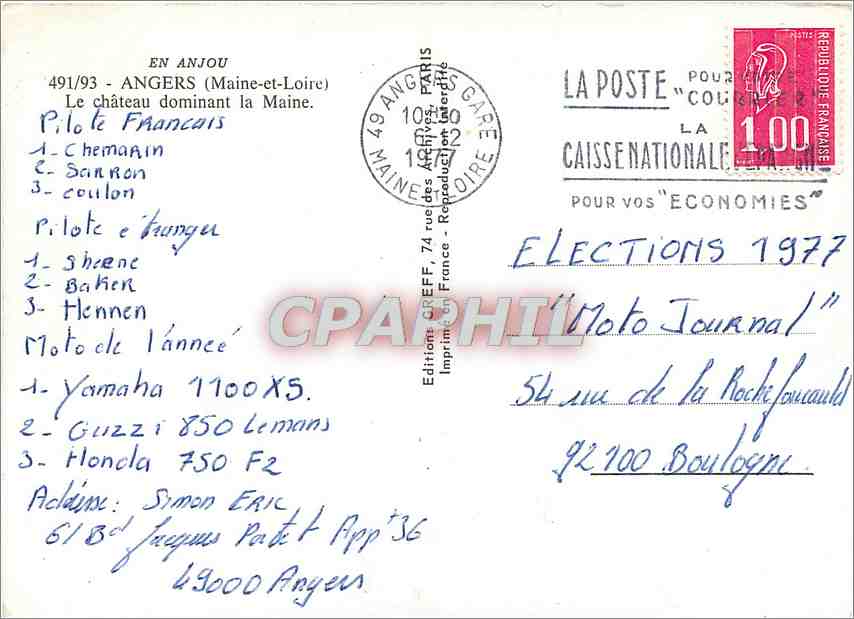 EN ANJOU
491/93 - ANGERS (Maine-et-Loire)
Le château dominant la Maine.
Pilote Francais
1- Chemarin
2- Sarron
3- coulon
Pilote étranger
1- Sheene
2- Baker
3- Hennen
Moto de l'année
1- Yamaha 1100 XS.
2- Guzzi 850 Lemans
3- Honda 750 F2
Adresse: Simon Eric
61 Bd Jacques Portet Appt 36
49000 Angers
Editions GREFF, 74 rue des Archives, PARIS
Imprimé en France - Reproduction interdite
49 ANGERS GARE
10H30
6-12
1977
MAINE-ET-LOIRE
LA POSTE POUR VOTRE
"COURRIER"
LA
CAISSE NATIONALE D'EPARGNE
POUR VOS "ECONOMIES"
POSTES
REPUBLIQUE FRANÇAISE
1.00
ELECTIONS 1977
"Moto Journal"
54 rue de la Rochefoucauld
92100 Boulogne
CPAPHIL